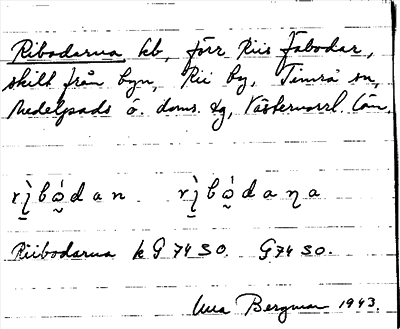 Ribodarna hb, förr Riis Fäbodar,
skilt från byn, Rii by, Timrå sn,
Medelpads ö. doms. tg, Västernorrl. län.
rìbó̰dan rìbó̰daƞa
Riibodarna k G 74 SO. G74 SO.
Bergman 1943.